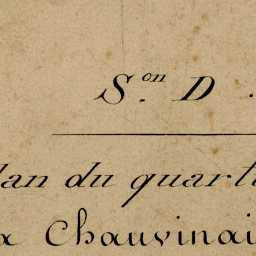 S.on D.
lan du quart
a Chauvinai